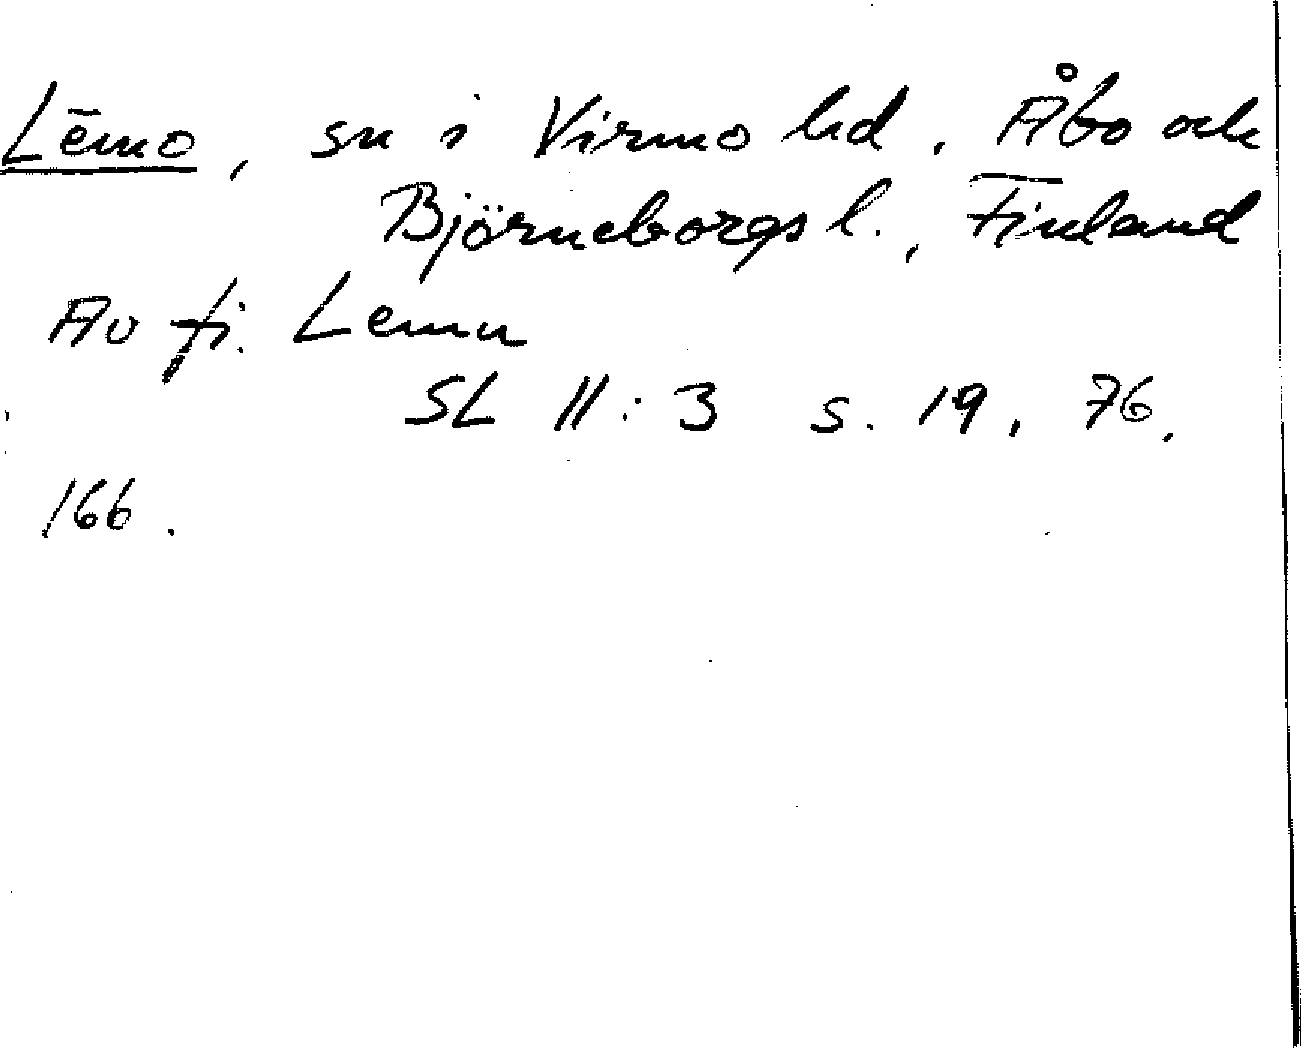 Lēmo, sn i Virmo hd. Åbo och
Björneborgs l., Finland
Av fi. Lemu
SL II:3 s. 19, 76,
166.